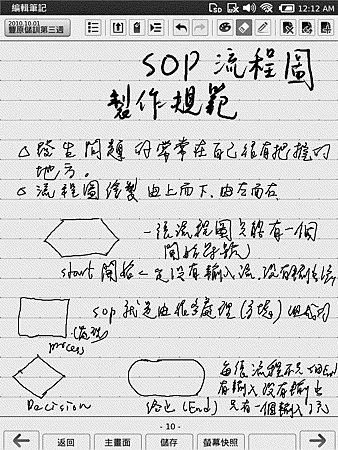 編輯筆記
12:12 AM
2010.10.01
豐原儲訓第三週
SOP 流程圖
製作規範
△發生問題的常常在自己很有把握的
地方。
△流程圖繪製由上而下.由左而右
一張流程圖只能有一個
開始
start 開始 沒有輸入流.沒有
SOP 就是由很多處理(方塊)組成的
(處理)
process
Decision
終止 (End)
每張流程不只一個End
有輸入沒有輸出
只有一個輸入
- 10 -
返回
主畫面
儲存
螢幕快照